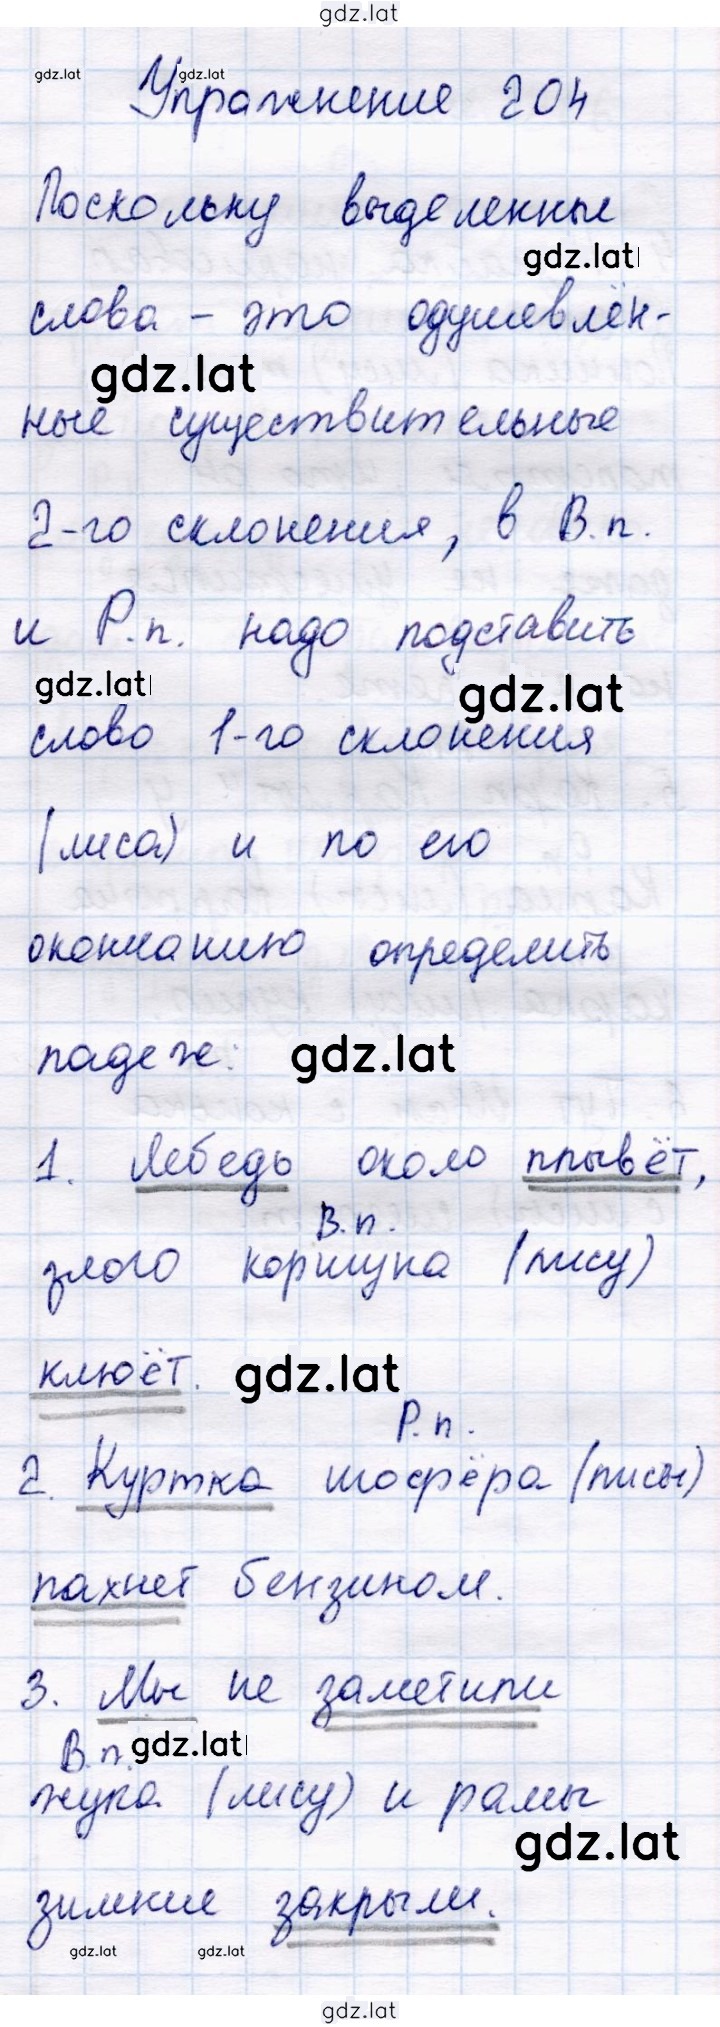 gdz.lat
gdz.lat gdz.lat
Упражнение 204
Поскольку выделенные
gdz.lat
слова - это одушевлён-
gdz.lat
ные существительные
2-го склонения, в В.п.
и Р.п. надо подставить
gdz.lat gdz.lat
слово 1-го склонения
(лиса) и по его
окончанию определить
падеж: gdz.lat
1. Лебедь около плывёт,
В.п.
злого коршуна (лису)
клюёт. gdz.lat
Р.п.
2. Куртка шофёра (лисы)
пахнет бензином.
3. Мы не заметили
В.п. gdz.lat
жука (лису) и рамы
gdz.lat
зимние закрыли.
gdz.lat gdz.lat
gdz.lat